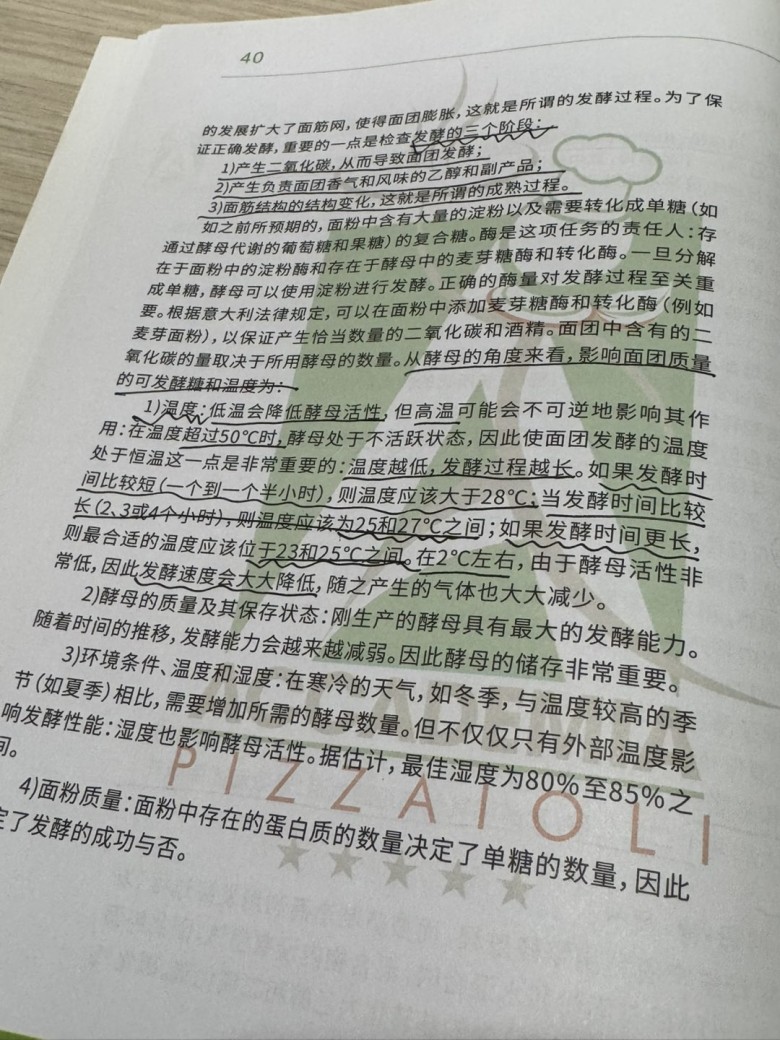 40
的发展扩大了面筋网，使得面团膨胀，这就是所谓的发酵过程。为了保
证正确发酵，重要的一点是检查发酵的三个阶段：
1)产生二氧化碳，从而导致面团发酵；
2)产生负责面团香气和风味的乙醇和副产品；
3)面筋结构的结构变化，这就是所谓的成熟过程。
如之前所预期的，面粉中含有大量的淀粉以及需要转化成单糖（如
通过酵母代谢的葡萄糖和果糖）的复合糖。酶是这项任务的责任人：存
在于面粉中的淀粉酶和存在于酵母中的麦芽糖酶和转化酶。一旦分解
成单糖，酵母可以使用淀粉进行发酵。正确的酶量对发酵过程至关重
要。根据意大利法律规定，可以在面粉中添加麦芽糖酶和转化酶（例如
麦芽面粉），以保证产生恰当数量的二氧化碳和酒精。面团中含有的二
氧化碳的量取决于所用酵母的数量。从酵母的角度来看，影响面团质量
的可发酵糖和温度为：
1)温度：低温会降低酵母活性，但高温可能会不可逆地影响其作
用：在温度超过50℃时，酵母处于不活跃状态，因此使面团发酵的温度
处于恒温这一点是非常重要的：温度越低，发酵过程越长。如果发酵时
间比较短（一个到一个半小时），则温度应该大于28℃；当发酵时间比较
长（2、3或4个小时），则温度应该为25和27℃之间；如果发酵时间更长，
则最合适的温度应该位于23和25℃之间。在2℃左右，由于酵母活性非
常低，因此发酵速度会大大降低，随之产生的气体也大大减少。
2)酵母的质量及其保存状态：刚生产的酵母具有最大的发酵能力。
随着时间的推移，发酵能力会越来越减弱。因此酵母的储存非常重要。
3)环境条件、温度和湿度：在寒冷的天气，如冬季，与温度较高的季
节（如夏季）相比，需要增加所需的酵母数量。但不仅仅只有外部温度影
响发酵性能：湿度也影响酵母活性。据估计，最佳湿度为80%至85%之
间。
4)面粉质量：面粉中存在的蛋白质的数量决定了单糖的数量，因此
定了发酵的成功与否。
ACCADEMIA
PIZZAIOLI